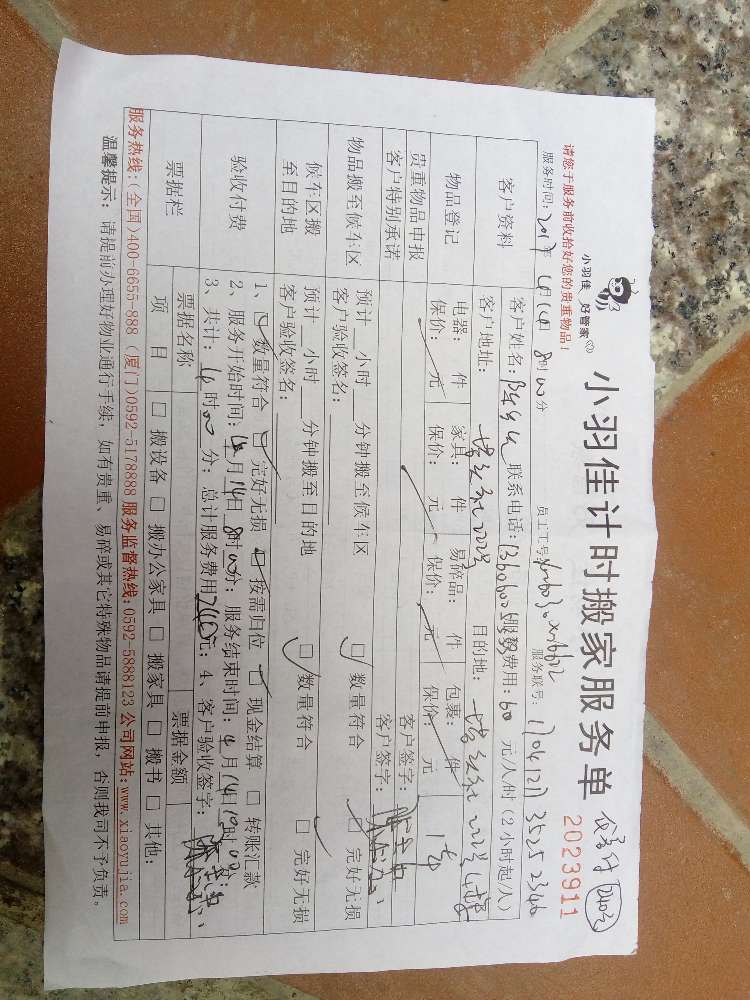 小羽佳 好管家
小羽佳计时搬家服务单
2403
2023911
请您于服务前收拾好您的贵重物品!
服务时间:2017年4月14日8时00分 员工工号: 服务联号:
客户资料
客户姓名: 联系电话: 服务费用:60元/人/时(2小时起/人)
客户地址: 222号 目的地: 222号4楼
物品登记
电器: 件 家具: 件 易碎品: 件 包裹: 件
保价: 元 保价: 元 保价: 元 保价: 元
贵重物品申报
客户签字:
客户特别承诺
客户签字:
物品搬至候车区
预计__小时__分钟搬至候车区 □数量符合 □完好无损
客户验收签名:
候车区搬至目的地
预计__小时__分钟搬至目的地 □数量符合 □完好无损
客户验收签名:
验收付费
1、□数量符合 □完好无损 □按需归位 □现金结算 □转账汇款
2、服务开始时间:4月14日8时00分;服务结束时间:4月14日10时00分;
3、共计: 时00分;总计服务费用240元;4、客户验收签字:
票据栏
票据名称 票据金额
项目 □搬设备 □搬办公家具 □搬家具 □搬书 □其他:
服务热线:(全国)400-6655-888 (厦门)0592-5178888 服务监督热线:0592-5888123 公司网站:www.xiaoyujia.com
温馨提示: 请提前办理好物业通行手续,如有贵重、易碎或其它特殊物品请提前申报,否则我司不予负责。